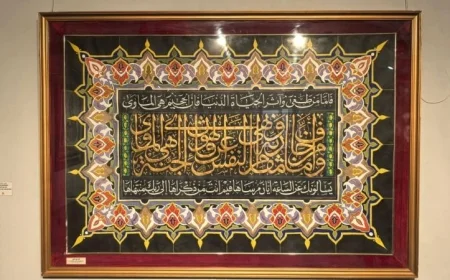 فاما من طغى وآثر الحياة الدنيا فان الجحيم هي المأوى
واما من خاف مقام ربه ونهى النفس عن الهوى فان الجنة هي المأوى
يسألونك عن الساعة ايان مرساها فيم انت من ذكراها الى ربك منتهاها